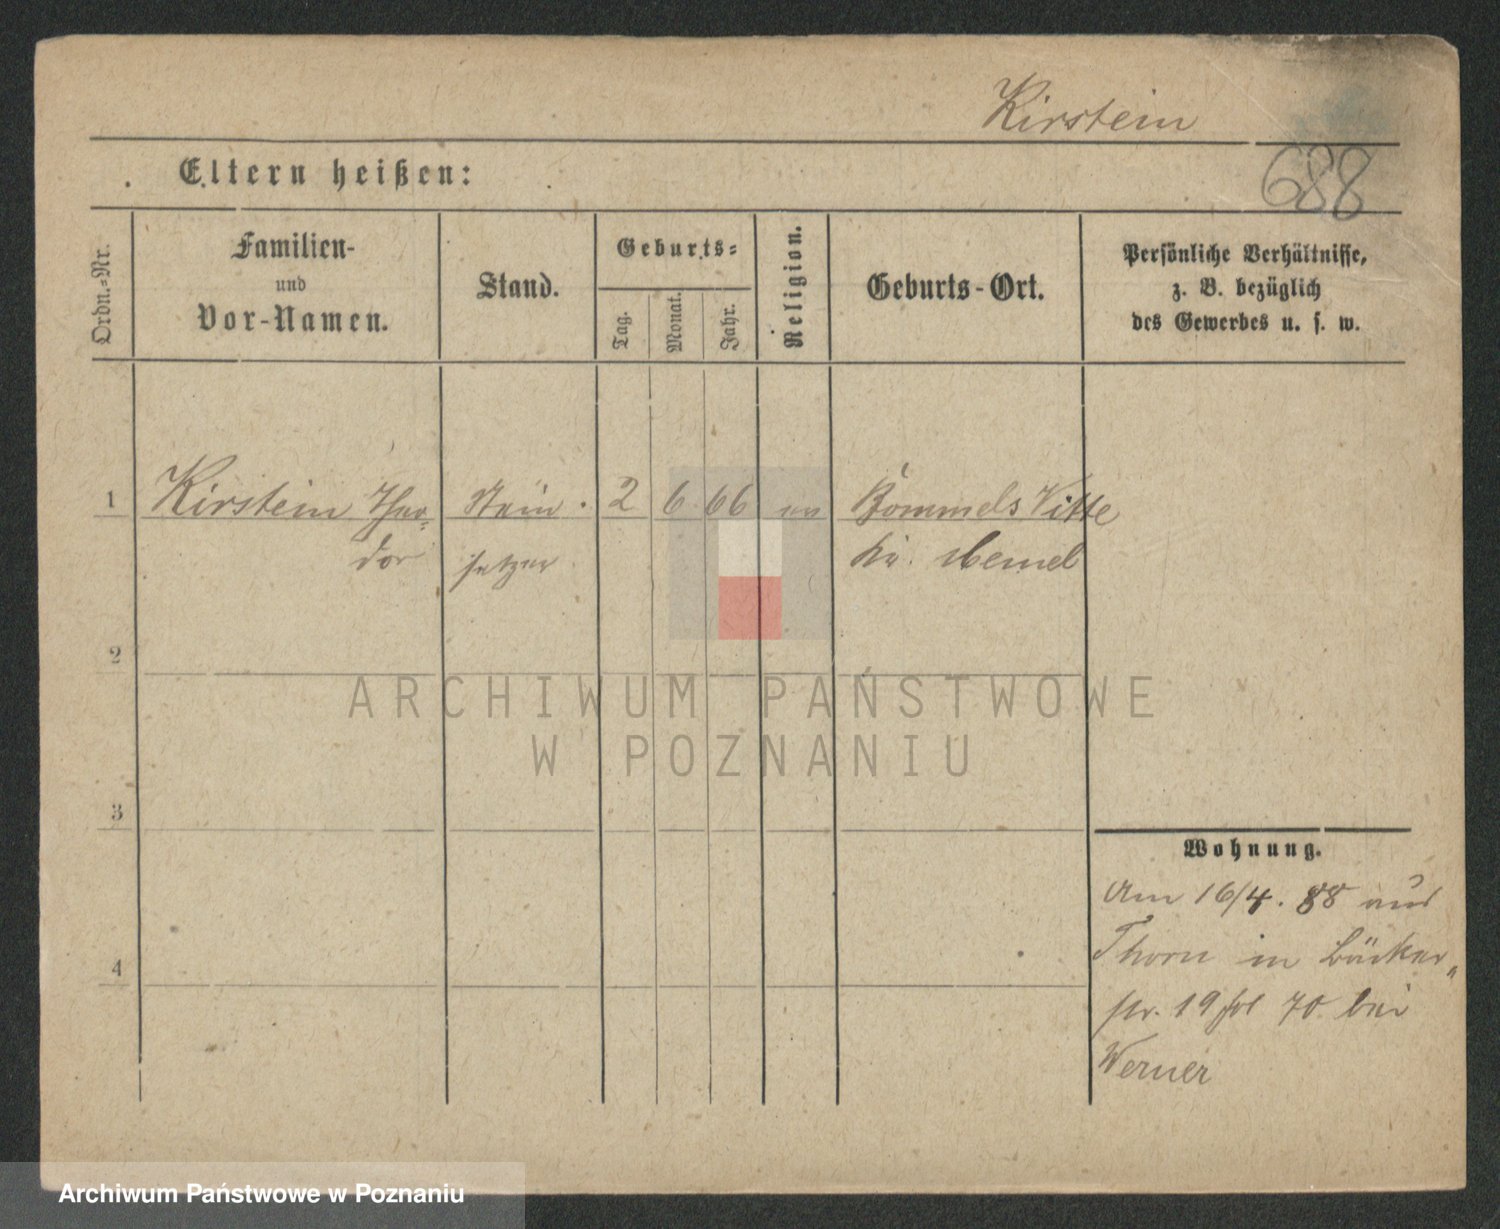 Kirstein
688
Eltern heißen:
Ordn.=Nr.
Familien-
und
Vor-Namen.
Stand.
Geburts=
Tag.
Monat.
Jahr.
Religion.
Geburts-Ort.
Persönliche Verhältnisse,
z. B. bezüglich
des Gewerbes u. s. w.
1 Kirstein Theo= Stein. 2 6 66 ev Bommels Vitte
dor setzer Kr. Memel
2
3
4
Wohnung.
Am 16/4. 88 aus
Thorn in Bäcker„
str. 19 fol 70 bei
Werner
ARCHIWUM PAŃSTWOWE
W POZNANIU
Archiwum Państwowe w Poznaniu